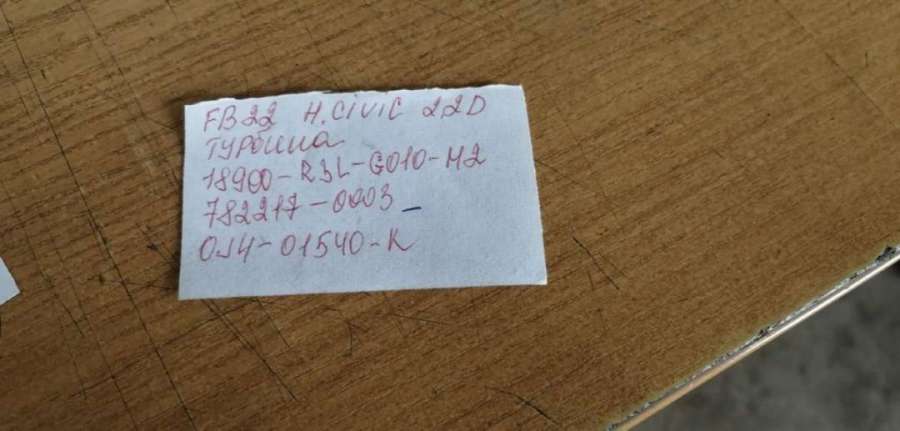 FB22 H.CIVIC 2,2D
ТУРбина
18900-R3L-G010-M2
782217-0003
0J4-01540-K